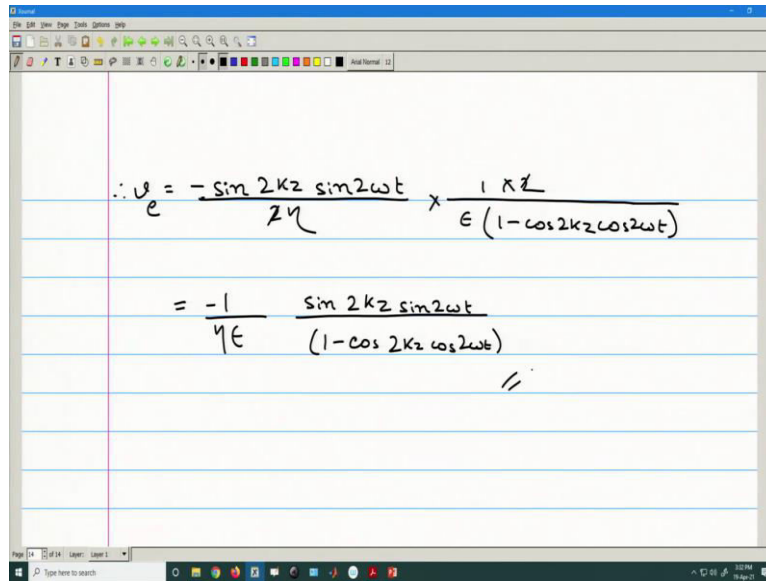 Journal
File Edit View Page Tools Options Help
Arial Normal 12
∴ v_e = - sin 2kz sin2ωt / 2η × 1 × 2 / ϵ (1-cos2kz cos2ωt)
= -1 / ηϵ sin 2kz sin2ωt / (1-cos 2kz cos2ωt)
Page 14 of 14 Layer: Layer 1
Type here to search
3:02 PM
19-Apr-21